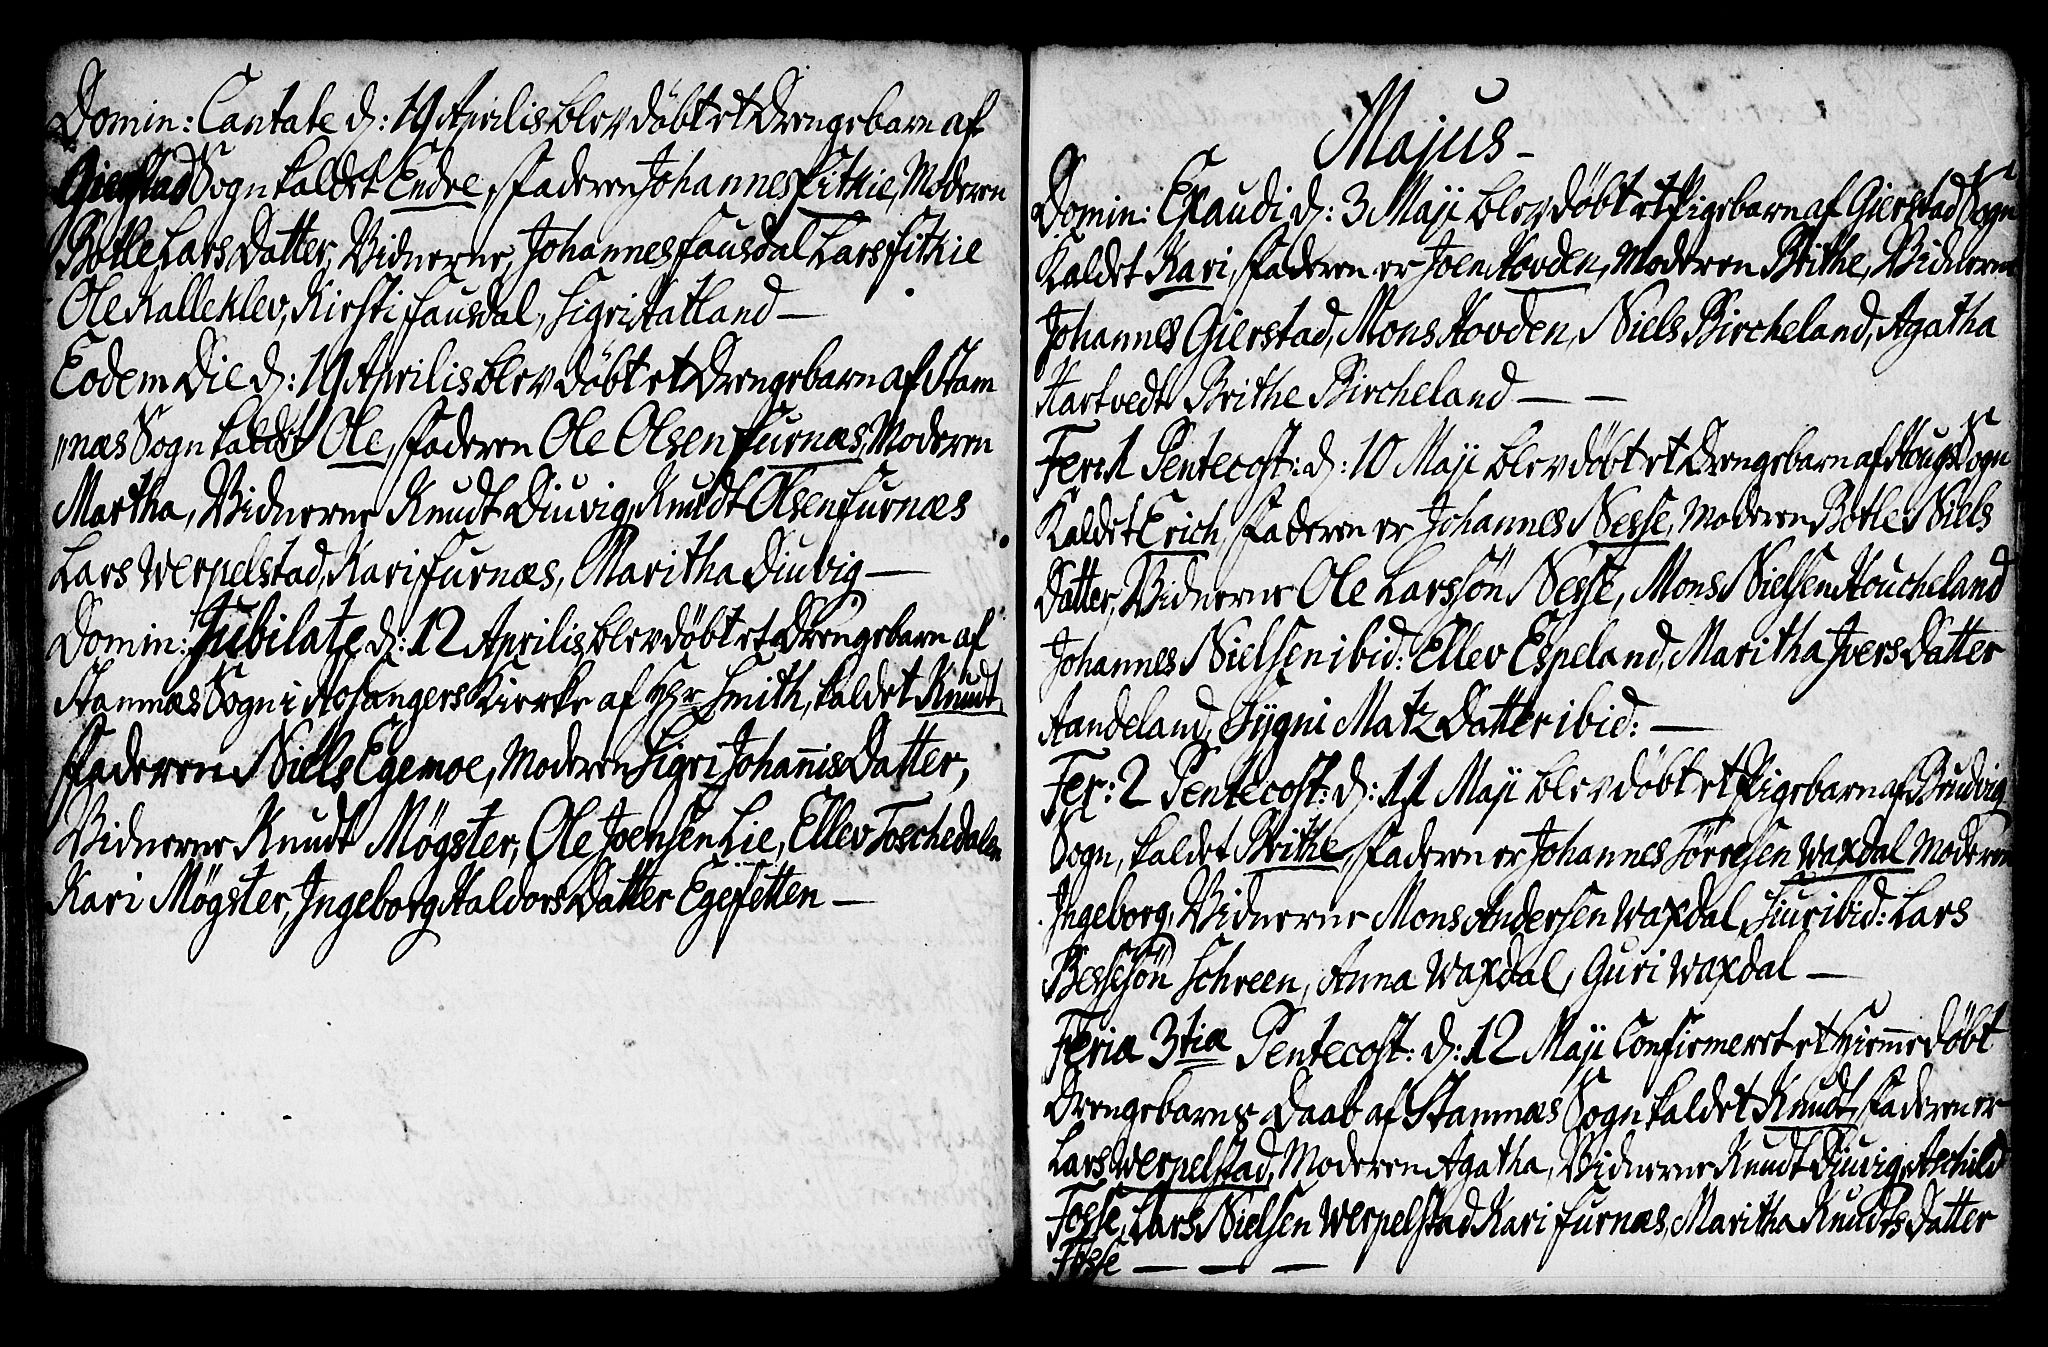 Domin: Cantate d: 19 Aprilis blev döbt et Drengebarn af
Gierstad Sogn kaldet Endre, Faderen Johannes Fitkie, Moderen
Botle Lars Datter, Vidnerne, Johannes Fausdal Lars Fitkie
Ole Kalleklev, Kirsti Fausdal, Sigri Hatland —
Eodem Die d: 19 Aprilis blev döbt et Drengebarn af Stam
„næs Sogn kaldet Ole, Faderen Ole Olsen Furnæs, Moderen
Martha, Vidnerne Knudt Diuvig, Knudt Olsen Furnæs
Lars Werpelstad, Kari Furnæs, Maritha Diuvig —
Domin: Jubilate d: 12 Aprilis blev döbt et Drengebarn af
Stamnæs Sogn i Hosangers Kierke af Hr Smith, kaldet Knudt,
Faderen Niels Egemoe, Moderen Sigri Johannis Datter,
Vidnerne Knudt Mögster, Ole Joensen Lie, Ellev Toschedalen
Kari Mögster, Ingeborg Haldors Datter Egesetten —
Majus —
Domin: Exaudi d: 3 Maji blev döbt et Pigebarn af Gierstad Sogn
Kaldet Kari, Faderen er Joen Hovden, Moderen Brithe, Vidnerne
Johannes Gierstad, Mons Hovden, Niels Bircheland, Agatha
Hartvedt Brithe Bircheland — —
Feri 1 Pentecost: d: 10 Maji blev döbt et Drengebarn af Hougs Sogn
Kaldet Erich, Faderen er Johannes Nesse, Moderen Botle Niels
Datter, Vidnerne Ole Larssön Nesse, Mons Nielsen Houcheland
Johannes Nielsen ibid: Ellev Espeland, Maritha Ivers Datter
Aandeland, Sygni Matz Datter ibid: —
Fer: 2 Pentecost: d: 11 Maji blev döbt et Pigebarn af Brudvig
Sogn, kaldet Brithe, Faderen er Johannes Törresen Waxdal Moderen
Ingeborg, Vidnerne Mons Andersen Waxdal, Siur ibid: Lars
Bessesön Schreen, Anna Waxdal, Guri Waxdal —
Feria 3tia Pentecost: d: 12 Maji Confirmeret et Hiemmedöbt
Drengebarns Daab af Stamnæs Sogn kaldet Knudt, Faderen er
Lars Werpelstad, Moderen Agatha, Vidnerne Knudt Diuvig, Aschild
Fosse, Lars Nielsen Werpelstad Kari Furnæs, Maritha Knudts Datter
Fosse — — —